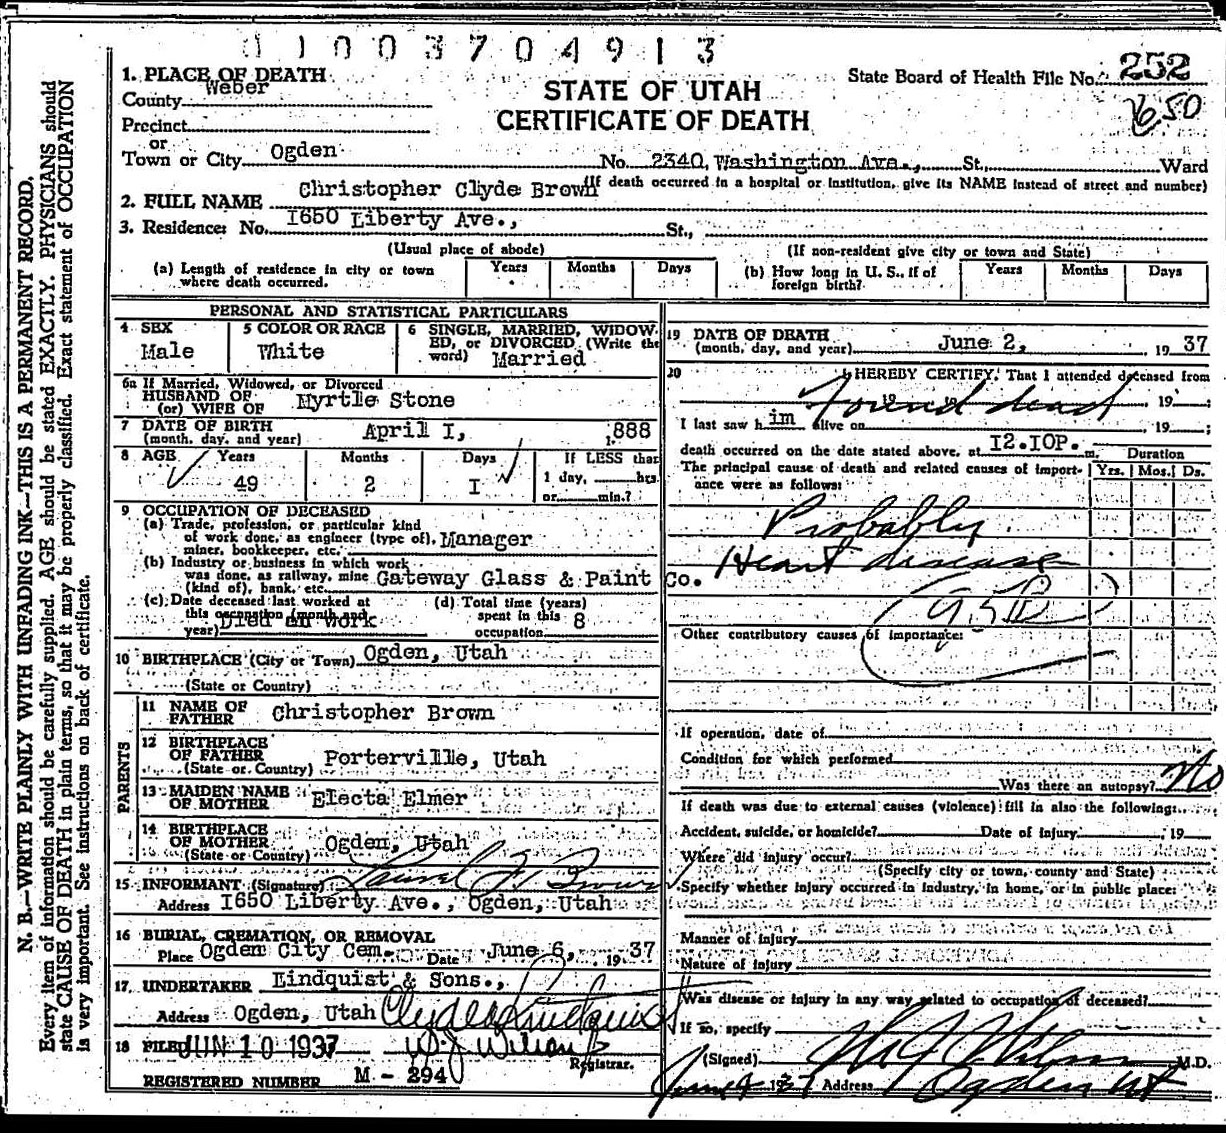 1 1 0 0 3 7 0 4 9 1 3
1. PLACE OF DEATH
County Weber
Precinct
or
Town or City Ogden
STATE OF UTAH
CERTIFICATE OF DEATH
State Board of Health File No. 252
650
No. 2340 Washington Ave., St., Ward
(If death occurred in a hospital or institution, give its NAME instead of street and number)
2. FULL NAME Christopher Clyde Brown
3. Residence: No. I650 Liberty Ave., St.,
(Usual place of abode) (If non-resident give city or town and State)
(a) Length of residence in city or town where death occurred. Years Months Days
(b) How long in U. S., if of foreign birth? Years Months Days
PERSONAL AND STATISTICAL PARTICULARS
4 SEX Male
5 COLOR OR RACE White
6 SINGLE, MARRIED, WIDOWED, or DIVORCED (Write the word) Married
6a If Married, Widowed, or Divorced
HUSBAND OF
(or) WIFE OF Myrtle Stone
7 DATE OF BIRTH
(month, day, and year) April I, 1888
8 AGE Years 49 Months 2 Days I
If LESS than 1 day, hrs. or min.?
9 OCCUPATION OF DECEASED
(a) Trade, profession, or particular kind
of work done, as engineer (type of),
miner, bookkeeper, etc. Manager
(b) Industry or business in which work
was done, as railway, mine
(kind of), bank, etc. Gateway Glass & Paint Co.
(c) Date deceased last worked at
this occupation (month and
year) Died at work
(d) Total time (years)
spent in this
occupation 8
10 BIRTHPLACE (City or Town) Ogden, Utah
(State or Country)
PARENTS
11 NAME OF FATHER Christopher Brown
12 BIRTHPLACE OF FATHER
(State or Country) Porterville, Utah
13 MAIDEN NAME OF MOTHER Electa Elmer
14 BIRTHPLACE OF MOTHER
(State or Country) Ogden, Utah
15 INFORMANT (Signature) Laurel Brown
Address I650 Liberty Ave., Ogden, Utah
16 BURIAL, CREMATION, OR REMOVAL
Place Ogden City Cem. Date June 6, 1937
17. UNDERTAKER Lindquist & Sons.,
Address Ogden, Utah Clyde Lindquist
18 FILED JUN 10 1937 W J Wilson
Registrar.
REGISTERED NUMBER M - 294
19 DATE OF DEATH
(month, day, and year) June 2, 19 37
20 I HEREBY CERTIFY, That I attended deceased from
Found dead 19 ;
I last saw him alive on 19 ;
death occurred on the date stated above, at I2.I0P. m.
The principal cause of death and related causes of importance were as follows:
Duration
Yrs. Mos. Ds.
Probably
Heart disease
95B
Other contributory causes of importance:
If operation, date of
Condition for which performed
Was there an autopsy? No
If death was due to external causes (violence) fill in also the following:
Accident, suicide, or homicide? Date of injury , 19
Where did injury occur?
(Specify city or town, county and State)
Specify whether injury occurred in industry, in home, or in public place:
Manner of injury
Nature of injury
Was disease or injury in any way related to occupation of deceased?
If so, specify
(Signed) W J Wilson M.D.
June 9 1937 Address Ogden Ut
N. B.—WRITE PLAINLY WITH UNFADING INK—THIS IS A PERMANENT RECORD.
Every item of information should be carefully supplied. AGE should be stated EXACTLY. PHYSICIANS should
state CAUSE OF DEATH in plain terms, so that it may be properly classified. Exact statement of OCCUPATION
is very important. See instructions on back of certificate.